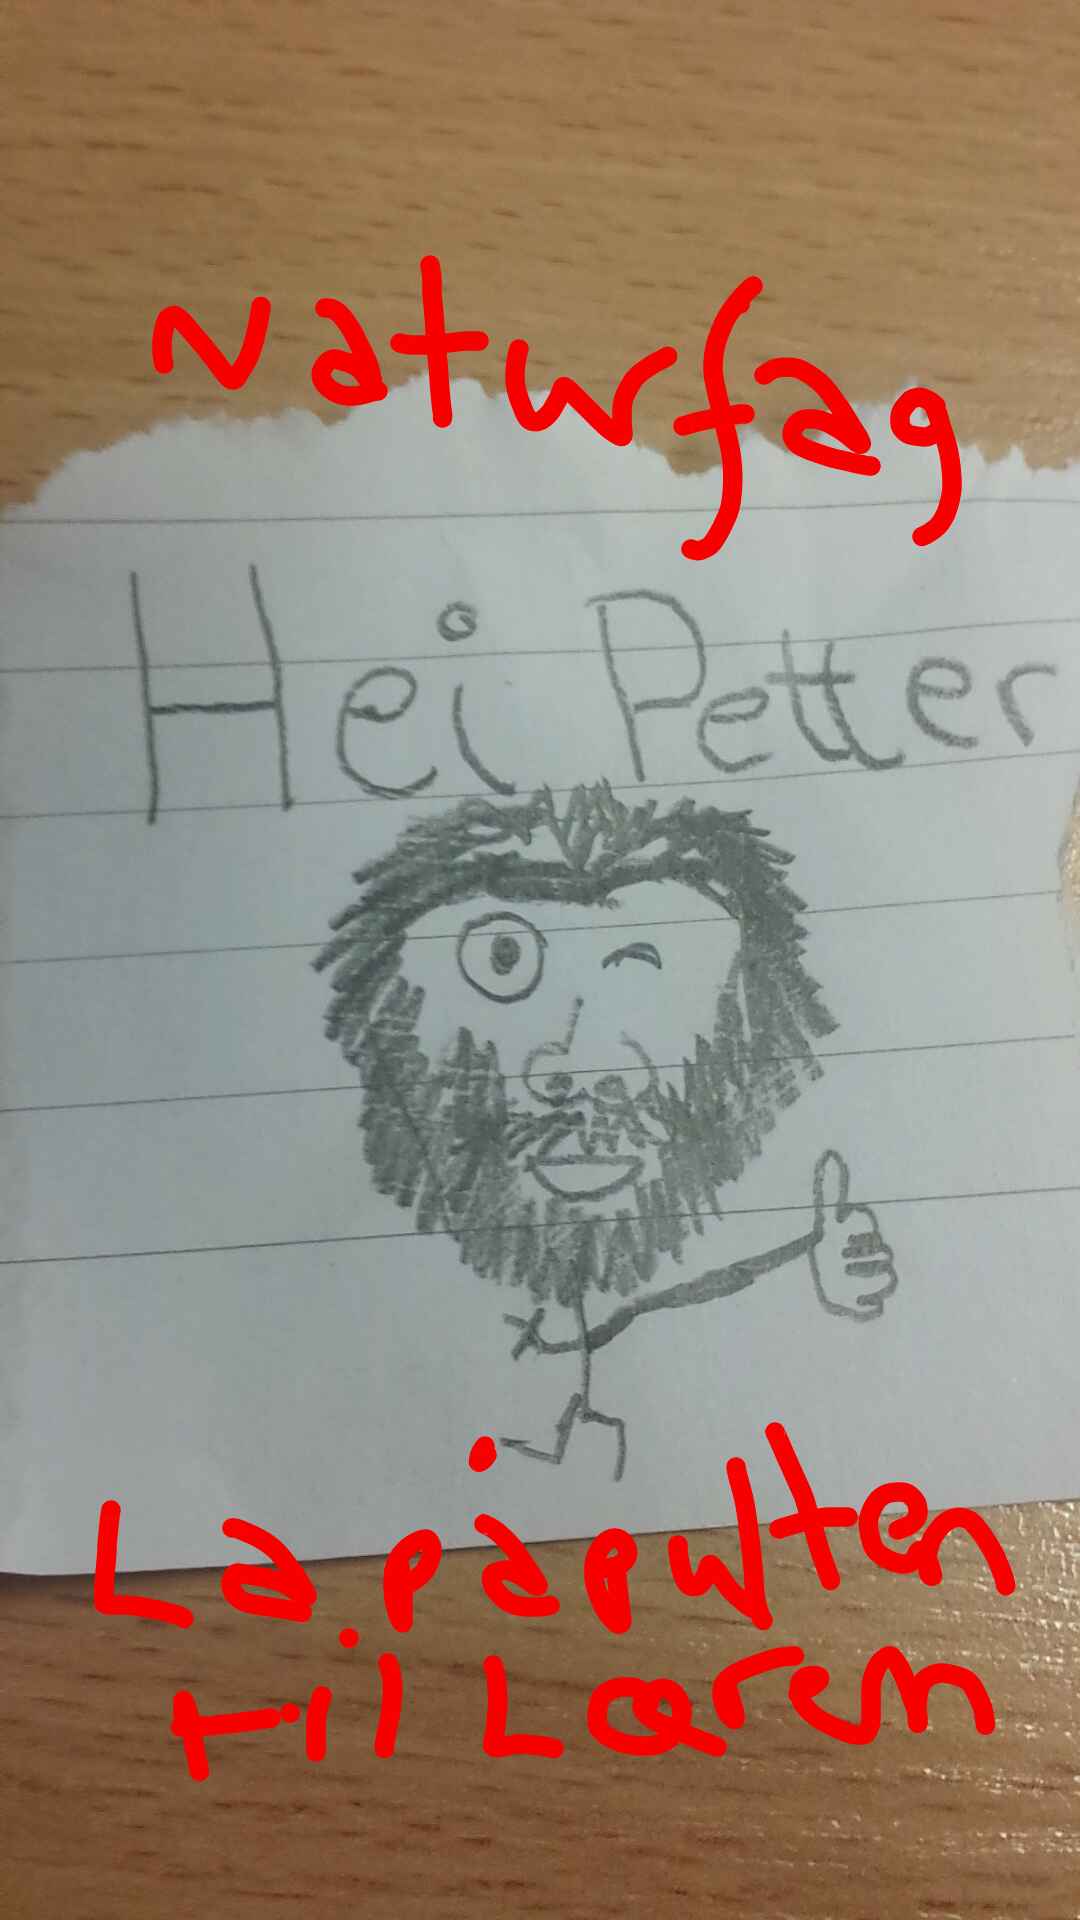 Naturfag
Hei Petter
La på pulten
til Læren